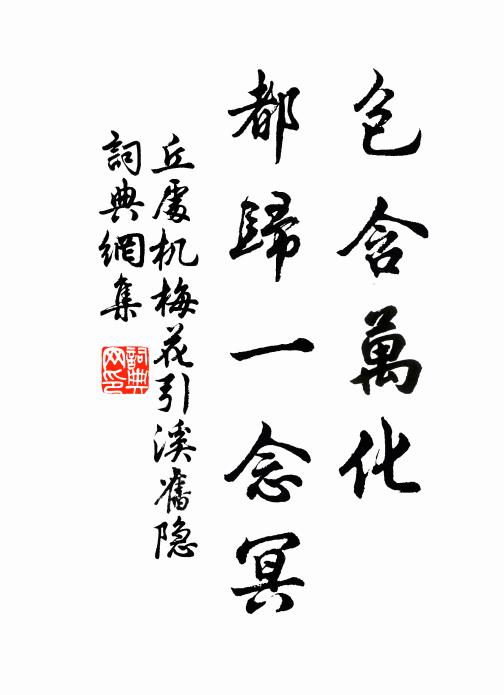 包含萬化
都歸一念冥
丘處机梅花引溪舊隐
詞典網集
詞典
网印